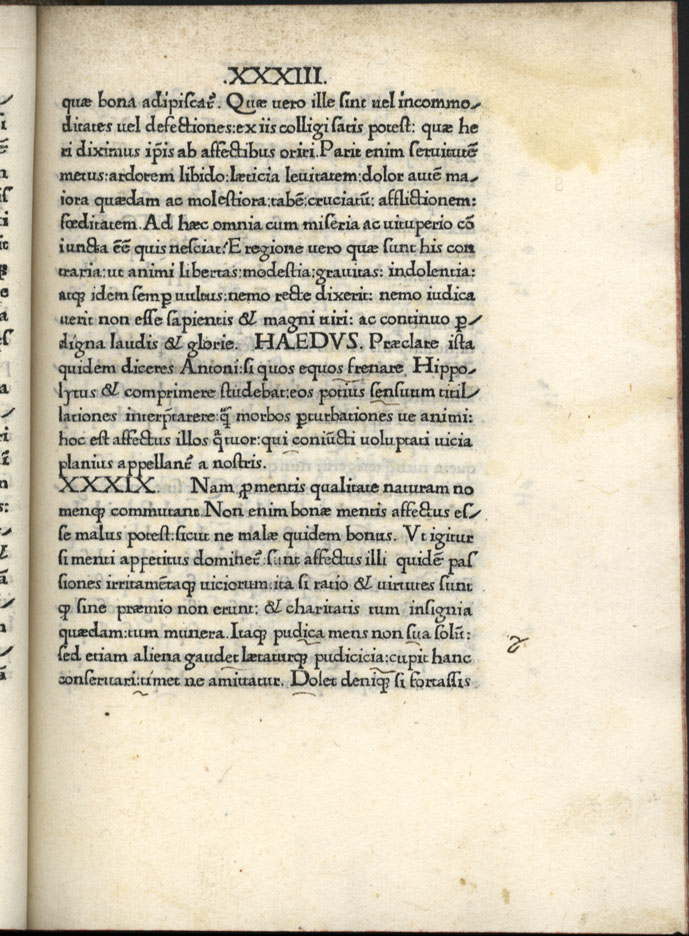 .XXXIII.
quæ bona adipiscat᷑. Quæ uero ille sint uel incommo⸗
ditates uel defectiones:ex iis colligi satis potest: quæ he
ri diximus ip̄is ab affectibus oriri.Parit enim seruitutē
metus:ardorem libido:læticia leuitatem:dolor autē ma⸗
iora quædam ac molestiora:tabē:cruciatū: afflictionem:
fœditatem. Ad hæc omnia cum miseria ac uituperio cō
iuncta eē̄ quis nesciat?E regione uero quæ sunt his con
traria:ut animi libertas:modestia:grauitas: indolentia:
atqꝫ idem semꝑ uultus:nemo recte dixerit: nemo iudica
uerit non esse sapientis & magni uiri: ac continuo ꝑ⸗
digna laudis & glorie. HAEDVS. Præclare ista
quidem diceres Antoni:si quos equos frenare Hippo⸗
lytus & comprimere studebat:eos potius sensuum titil⸗
lationes interp̄tarere:q̄ꝫ morbos ꝑturbationes ue animi:
hoc est affectus illos q̄tuor:qui coniūcti uoluptati uicia
planius appellanť a nostris.
XXXIX. Nam ꝓ mentis qualitate naturam no
menqꝫ commutant.Non enim bonæ mentis affectus es⸗
se malus potest:sicut ne malæ quidem bonus. Vt igitur
si menti appetitus dominet᷑:sunt affectus illi quidē pas
siones irritamētaqꝫ uiciorum:ita si ratio & uirtutes sunt
qꝫ sine præmio non erunt: & charitatis tum insignia
quædam:tum munera.Itaqꝫ pudica mens non sua solū:
sed etiam aliena gaudet lætaturqꝫ pudicicia:cupit hanc
conseruari:timet ne amittatur. Dolet deniqꝫ si fortassis